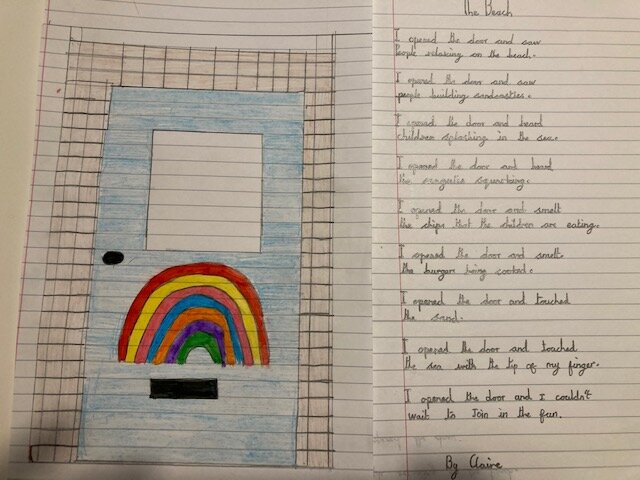 The Beach
I opened the door and saw
people relaxing on the beach.
I opened the door and saw
people building sandcastles.
I opened the door and heard
children splashing in the sea.
I opened the door and heard
the squawking.
I opened the door and smelt
the chips that the children are eating.
I opened the door and smelt
the burgers being cooked.
I opened the door and touched
the sand.
I opened the door and touched
the sea with the tip of my finger.
I opened the door and I couldn't
wait to Join in the fun.
By Claire